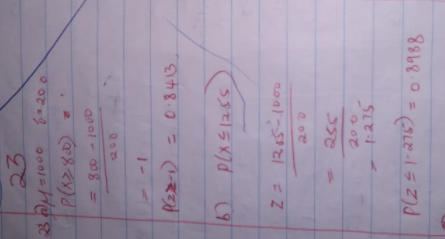 23
23. a) μ=1000 δ=200
P(X≥800)
= 800-1000
200
= -1
P(Z≥-1) = 0.8413
b) P(X≤1255)
Z = 1255-1000
200
= 255
200
= 1.275
P(Z≤1.275) = 0.8988